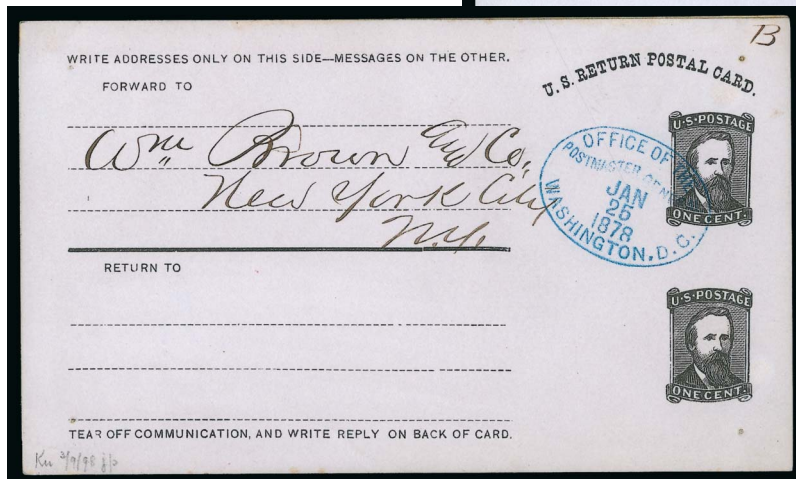 B
WRITE ADDRESSES ONLY ON THIS SIDE—MESSAGES ON THE OTHER.
U.S. RETURN POSTAL CARD.
FORWARD TO
Wm Brown & Co.,
New York City
N.Y.
U·S·POSTAGE
ONE CENT.
OFFICE OF THE
POSTMASTER GEN
JAN
25
1878
WASHINGTON, D.C.
RETURN TO
U·S·POSTAGE
ONE CENT.
TEAR OFF COMMUNICATION, AND WRITE REPLY ON BACK OF CARD.